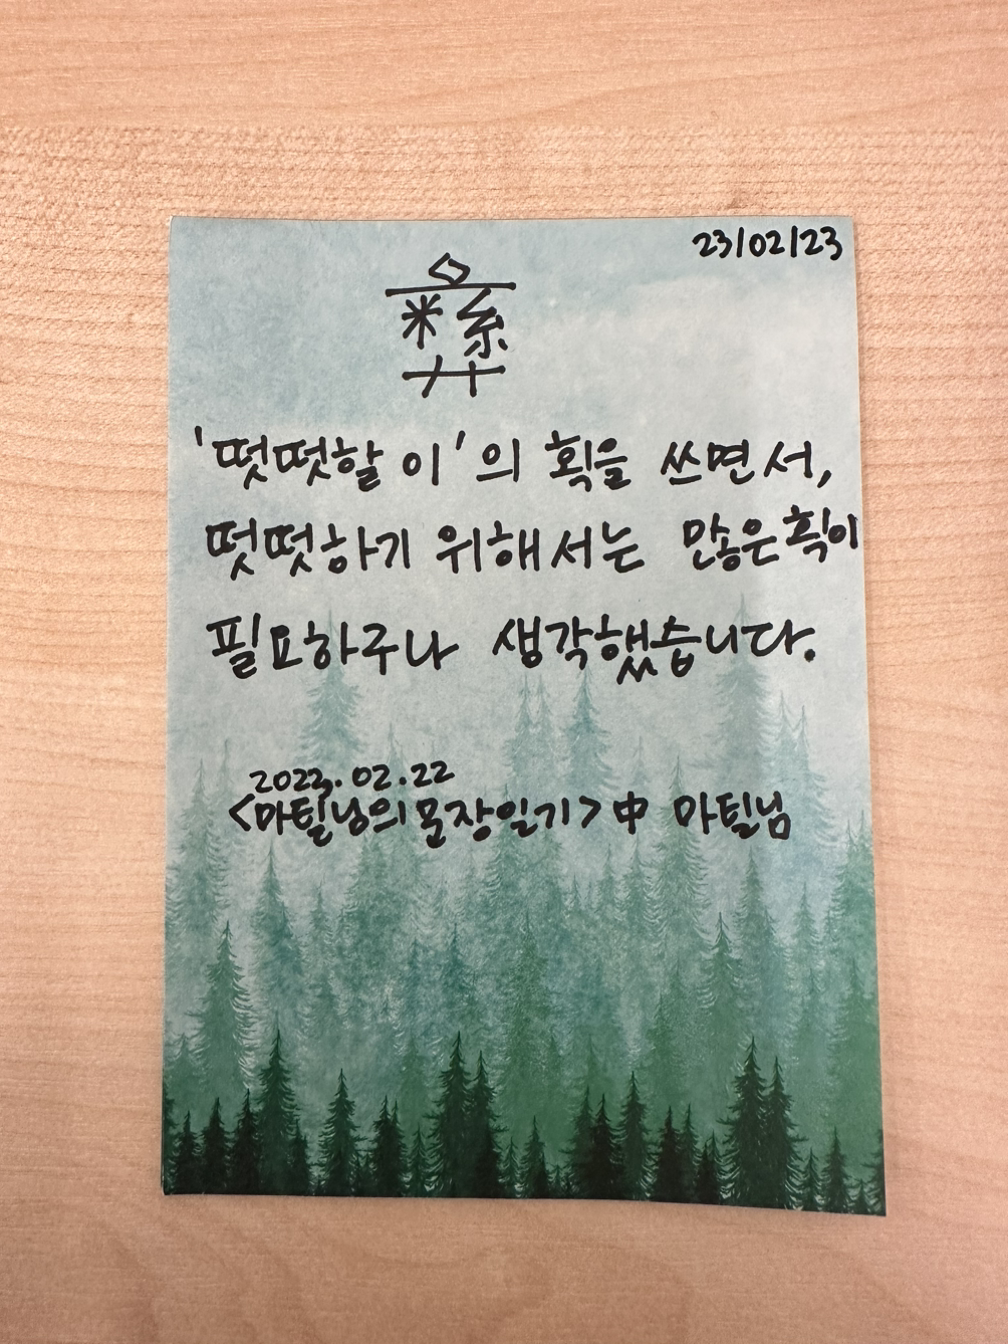 23/02/23
彝
'떳떳할 이'의 획을 쓰면서,
떳떳하기 위해서는 많은 획이
필요하구나 생각했습니다.
2023.02.22
<마틸님의 문장일기> 中 마틸님